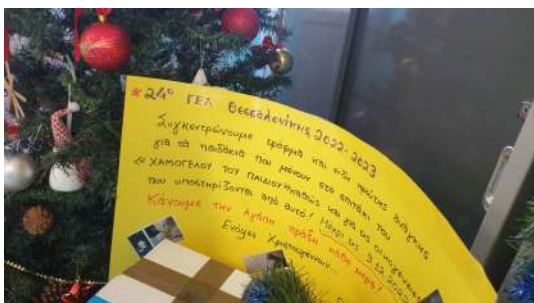 * 24ο ΓΕΛ Θεσσαλονίκης 2022-2023
Συγκεντρώνουμε τρόφιμα και είδη πρώτης ανάγκης
για τα παιδάκια που μένουν στο σπιτάκι του
« ΧΑΜΟΓΕΛΟΥ ΤΟΥ ΠΑΙΔΙΟΥ » καθώς και για τις οικογένειες
που υποστηρίζονται από αυτό! Μέχρι τις 9.12.2022
Κάνουμε την Αγάπη πράξη κάθε μέρα!
Ενόψει Χριστουγέννων...